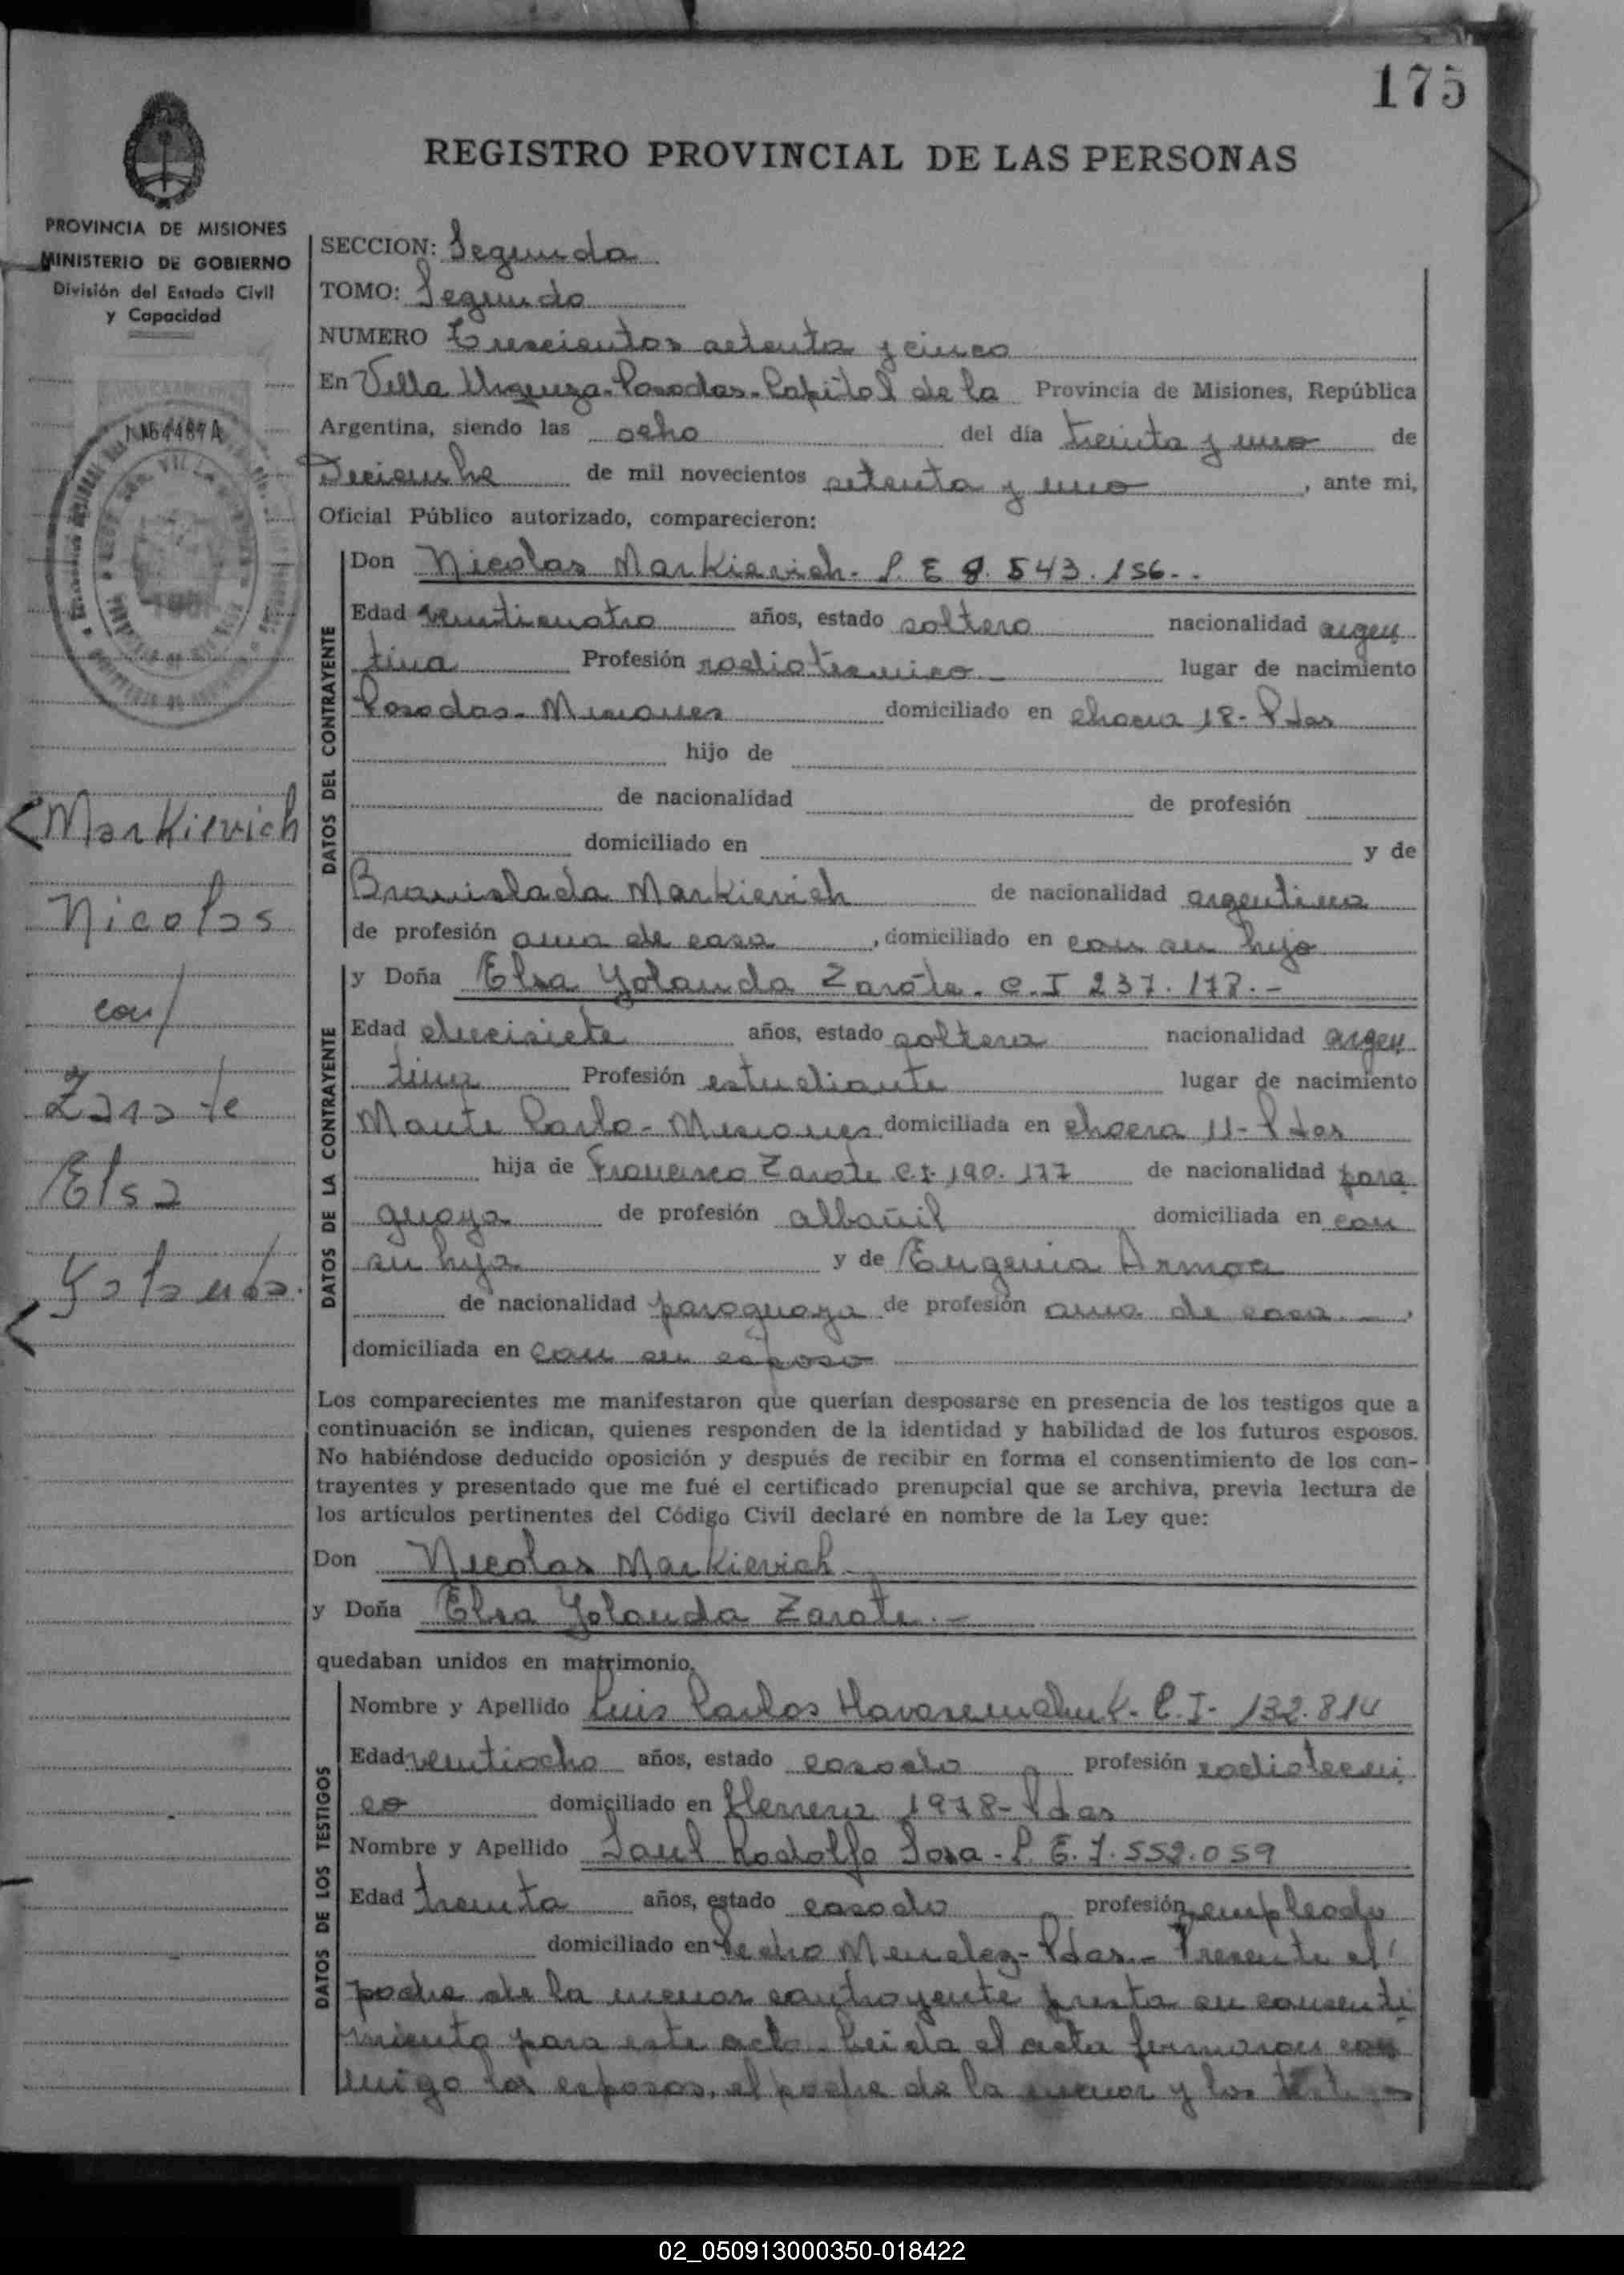 175
REGISTRO PROVINCIAL DE LAS PERSONAS
PROVINCIA DE MISIONES
MINISTERIO DE GOBIERNO
División del Estado Civil
y Capacidad
Markievich
Nicolas
con/
Zarate
Elsa
Yolanda.
SECCION: Segunda
TOMO: Segundo
NUMERO Trescientos setenta y cinco
En Villa Urquiza-Posadas-Capital de la Provincia de Misiones, República
Argentina, siendo las ocho del día treinta y uno de
Diciembre de mil novecientos setenta y uno, ante mi,
Oficial Público autorizado, comparecieron:
DATOS DEL CONTRAYENTE
Don Nicolas Markievich- L. E 8.543.156--
Edad veinticuatro años, estado soltero nacionalidad argen
tina Profesión radiotecnico- lugar de nacimiento
Posadas- Misiones domiciliado en chacra 18- Pdas
hijo de
de nacionalidad de profesión
domiciliado en y de
Bronislada Markievich de nacionalidad argentina
de profesión ama de casa, domiciliado en con su hijo
DATOS DE LA CONTRAYENTE
y Doña Elsa Yolanda Zarate. C.I 237.178.-
Edad diecisiete años, estado soltera nacionalidad argen
tina Profesión estudiante lugar de nacimiento
Monte Carlo- Misiones domiciliada en chacra 11- Pdas
hija de Francisco Zarate C.I. 190.177 de nacionalidad para
guaya de profesión albañil domiciliada en con
su hija y de Eugenia Armoa
de nacionalidad paraguaya de profesión ama de casa.-,
domiciliada en con su esposo
Los comparecientes me manifestaron que querían desposarse en presencia de los testigos que a
continuación se indican, quienes responden de la identidad y habilidad de los futuros esposos.
No habiéndose deducido oposición y después de recibir en forma el consentimiento de los con-
trayentes y presentado que me fué el certificado prenupcial que se archiva, previa lectura de
los artículos pertinentes del Código Civil declaré en nombre de la Ley que:
Don Nicolas Markievich-
y Doña Elsa Yolanda Zarate.-
quedaban unidos en matrimonio.
DATOS DE LOS TESTIGOS
Nombre y Apellido Luis Carlos C.I- 132.814
Edad veintiocho años, estado casado profesión radiotecni
co domiciliado en Herrera 1978- Pdas
Nombre y Apellido Saul Rodolfo Sosa- L. E. 7.552.059
Edad treinta años, estado casado profesión empleado
domiciliado en Pedro Mendez- Pdas.- Presente el
padre de la menor contrayente presta su consenti
miento para este acto- Leida el acta firmaron con
migo los esposos, el padre de la menor y los testigos
02_050913000350-018422